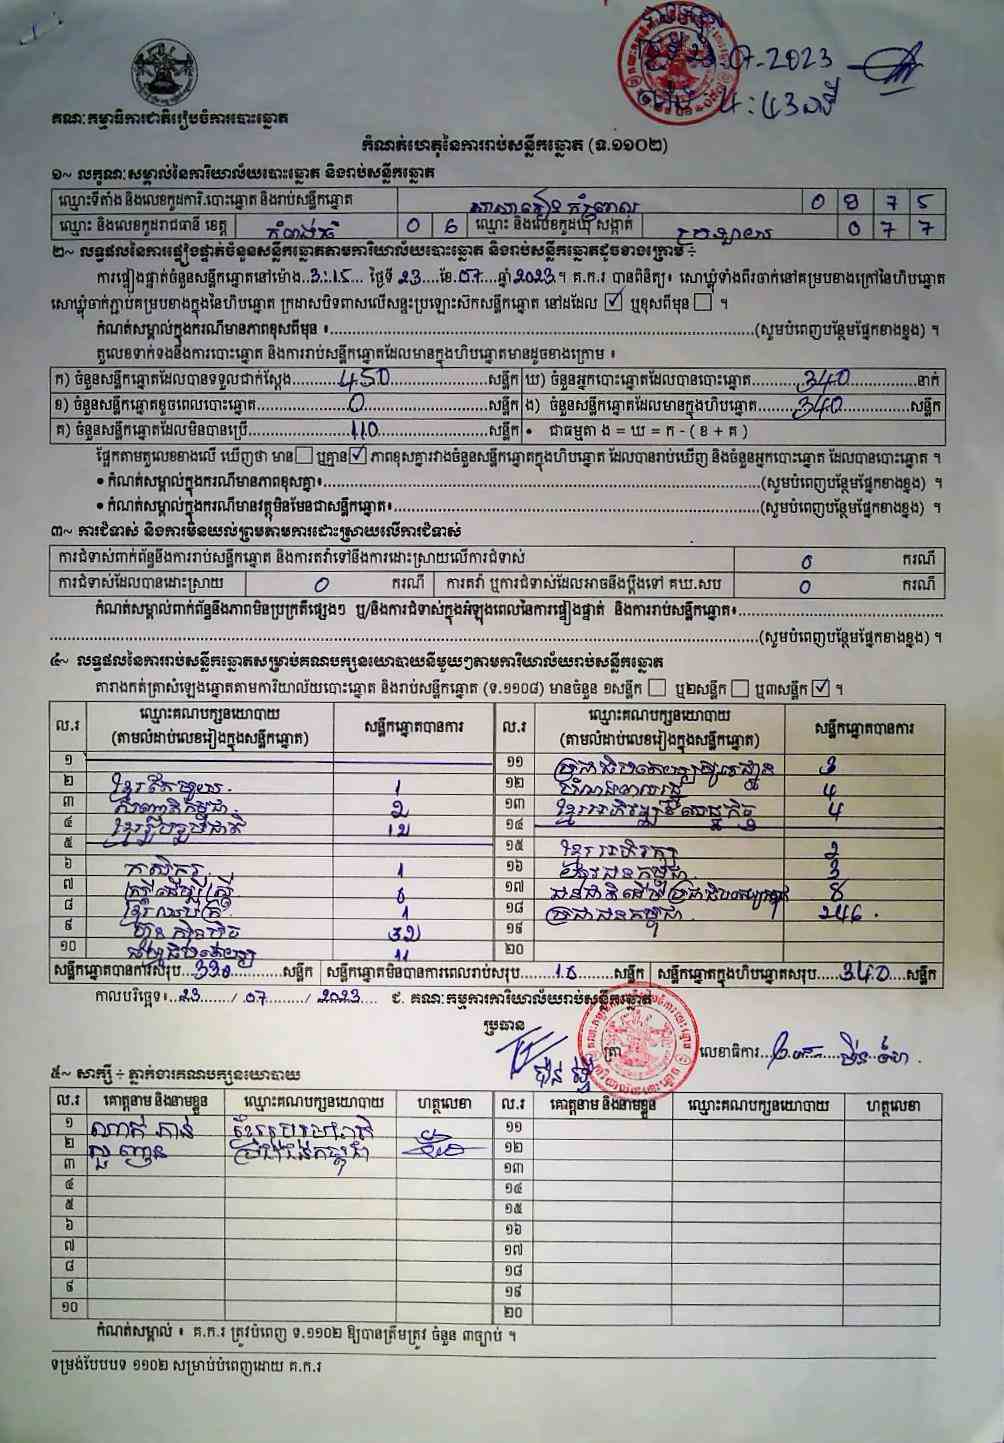 23.07-2023
4:43 នាទី
គណៈកម្មាធិការជាតិរៀបចំការបោះឆ្នោត
កំណត់ហេតុនៃការរាប់សន្លឹកឆ្នោត (ទ.១១០២)
១~ លក្ខណៈសម្គាល់នៃការិយាល័យបោះឆ្នោត និងរាប់សន្លឹកឆ្នោត
ឈ្មោះទីតាំង និងលេខកូដការិ.បោះឆ្នោត និងរាប់សន្លឹកឆ្នោត 0875
ឈ្មោះ និងលេខកូដរាជធានី ខេត្ត កំពង់ធំ 06 ឈ្មោះ និងលេខកូដឃុំ សង្កាត់ 077
២~ លទ្ធផលនៃការផ្ទៀងផ្ទាត់ចំនួនសន្លឹកឆ្នោតតាមការិយាល័យបោះឆ្នោត និងរាប់សន្លឹកឆ្នោតដូចខាងក្រោម ÷
ការផ្ទៀងផ្ទាត់ចំនួនសន្លឹកឆ្នោតនៅម៉ោង 3:15 ថ្ងៃទី 23 ខែ 07 ឆ្នាំ 2023 ។ គ.ក.រ បានពិនិត្យ៖ សោឃ្លុំទាំងពីរចាក់នៅគម្របខាងក្រៅនៃហិបឆ្នោត
សោឃ្លុំចាក់ភ្ជាប់គម្របខាងក្នុងនៃហិបឆ្នោត ក្រដាសបិទពាសលើសន្ទះប្រឡោះស៊កសន្លឹកឆ្នោត នៅដដែល ☑ ឬខុសពីមុន ☐ ។
កំណត់សម្គាល់ក្នុងករណីមានភាពខុសពីមុន ៖ (សូមបំពេញបន្ថែមផ្នែកខាងខ្នង) ។
តួលេខទាក់ទងនឹងការបោះឆ្នោត និងការរាប់សន្លឹកឆ្នោតដែលមានក្នុងហិបឆ្នោតមានដូចខាងក្រោម ៖
ក) ចំនួនសន្លឹកឆ្នោតដែលបានទទួលជាក់ស្តែង 450 សន្លឹក ឃ) ចំនួនអ្នកបោះឆ្នោតដែលបានបោះឆ្នោត 340 នាក់
ខ) ចំនួនសន្លឹកឆ្នោតខូចពេលបោះឆ្នោត 0 សន្លឹក ង) ចំនួនសន្លឹកឆ្នោតដែលមានក្នុងហិបឆ្នោត 340 សន្លឹក
គ) ចំនួនសន្លឹកឆ្នោតដែលមិនបានប្រើ 110 សន្លឹក • ជាធម្មតា ង = ឃ = ក - ( ខ + គ )
ផ្អែកតាមតួលេខខាងលើ ឃើញថា មាន ☐ ឬគ្មាន ☑ ភាពខុសគ្នារវាងចំនួនសន្លឹកឆ្នោតក្នុងហិបឆ្នោត ដែលបានរាប់ឃើញ និងចំនួនអ្នកបោះឆ្នោត ដែលបានបោះឆ្នោត ។
• កំណត់សម្គាល់ក្នុងករណីមានភាពខុសគ្នា៖ (សូមបំពេញបន្ថែមផ្នែកខាងខ្នង) ។
• កំណត់សម្គាល់ក្នុងករណីមានវត្ថុមិនមែនជាសន្លឹកឆ្នោត៖ (សូមបំពេញបន្ថែមផ្នែកខាងខ្នង) ។
៣~ ការជំទាស់ និងការមិនយល់ព្រមតាមការដោះស្រាយលើការជំទាស់
ការជំទាស់ពាក់ព័ន្ធនឹងការរាប់សន្លឹកឆ្នោត និងការតវ៉ាទៅនឹងការដោះស្រាយលើការជំទាស់ 0 ករណី
ការជំទាស់ដែលបានដោះស្រាយ 0 ករណី ការតវ៉ា ឬការជំទាស់ដែលអាចនឹងប្តឹងទៅ គឃ.សប 0 ករណី
កំណត់សម្គាល់ពាក់ព័ន្ធនឹងភាពមិនប្រក្រតីផ្សេងៗ ឬ/និងការជំទាស់ក្នុងអំឡុងពេលនៃការផ្ទៀងផ្ទាត់ និងការរាប់សន្លឹកឆ្នោត៖
(សូមបំពេញបន្ថែមផ្នែកខាងខ្នង) ។
៤~ លទ្ធផលនៃការរាប់សន្លឹកឆ្នោតសម្រាប់គណបក្សនយោបាយនីមួយៗតាមការិយាល័យរាប់សន្លឹកឆ្នោត
តារាងកត់ត្រាសំឡេងឆ្នោតតាមការិយាល័យបោះឆ្នោត និងរាប់សន្លឹកឆ្នោត (ទ.១១០៨) មានចំនួន ១សន្លឹក ☐ ឬ២សន្លឹក ☐ ឬ៣សន្លឹក ☑ ។
ល.រ ឈ្មោះគណបក្សនយោបាយ (តាមលំដាប់លេខរៀងក្នុងសន្លឹកឆ្នោត) សន្លឹកឆ្នោតបានការ ល.រ ឈ្មោះគណបក្សនយោបាយ (តាមលំដាប់លេខរៀងក្នុងសន្លឹកឆ្នោត) សន្លឹកឆ្នោតបានការ
១ ១១ 3
២ ខ្មែរតែមួយ 1 ១២ 4
៣ 2 ១៣ ខ្មែរអភិវឌ្ឍន៍សេដ្ឋកិច្ច 4
៤ ខ្មែររួបរួមជាតិ 12 ១៤
៥ ១៥ ខ្មែរអភិរក្ស 2
៦ កសិករ 1 ១៦ 3
៧ ស្រ្តីដើម្បីស្រ្តី ១៧ 8
៨ 1 ១៨ ប្រជាជនកម្ពុជា 246
៩ ហ៊្វុនស៊ិនប៉ិច 32 ១៩
១០ 11 ២០
សន្លឹកឆ្នោតបានការសរុប 330 សន្លឹក សន្លឹកឆ្នោតមិនបានការពេលរាប់សរុប 10 សន្លឹក សន្លឹកឆ្នោតក្នុងហិបឆ្នោតសរុប 340 សន្លឹក
កាលបរិច្ឆេទ៖ 23 / 07 / 2023 ជ. គណៈកម្មការការិយាល័យរាប់សន្លឹកឆ្នោត
ប្រធាន
ត្រា លេខាធិការ
៥~ សាក្សី ÷ ភ្នាក់ងារគណបក្សនយោបាយ
ល.រ គោត្តនាម និងនាមខ្លួន ឈ្មោះគណបក្សនយោបាយ ហត្ថលេខា ល.រ គោត្តនាម និងនាមខ្លួន ឈ្មោះគណបក្សនយោបាយ ហត្ថលេខា
១ ខ្មែររួបរួមជាតិ ១១
២ ប្រជាជនកម្ពុជា ១២
៣ ១៣
៤ ១៤
៥ ១៥
៦ ១៦
៧ ១៧
៨ ១៨
៩ ១៩
១០ ២០
កំណត់សម្គាល់ ៖ គ.ក.រ ត្រូវបំពេញ ទ.១១០២ ឱ្យបានត្រឹមត្រូវ ចំនួន ៣ច្បាប់ ។
ទម្រង់បែបបទ ១១០២ សម្រាប់បំពេញដោយ គ.ក.រ